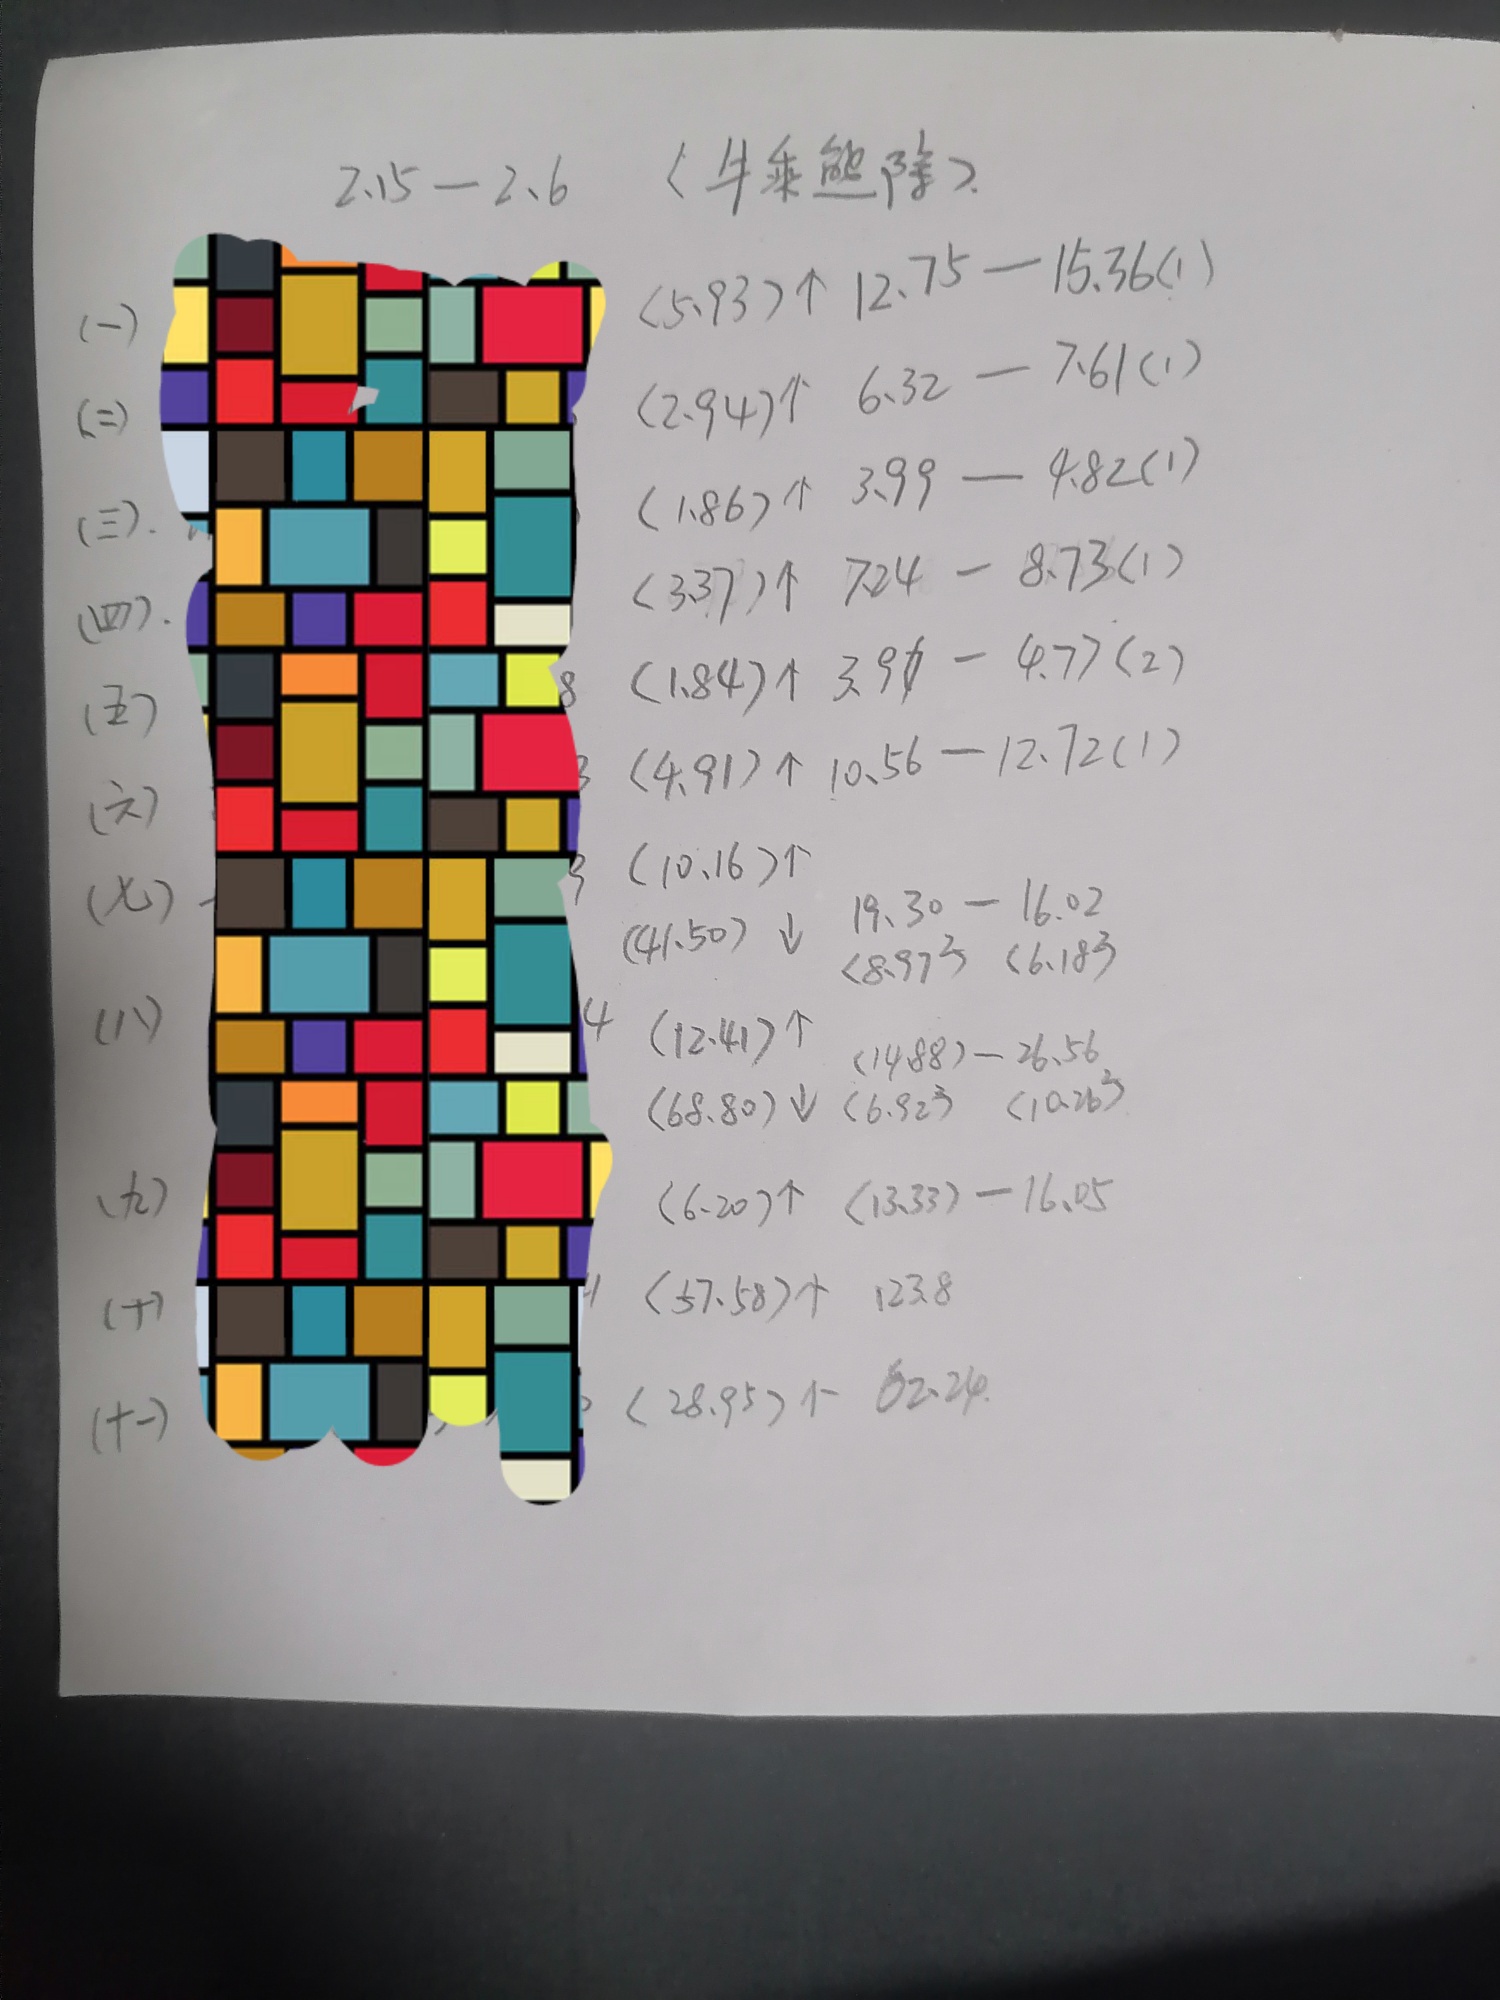 2.15 — 2.6 （牛乘熊除）.
（一） （5.93）↑ 12.75 — 15.36（1）
（二） （2.94）↑ 6.32 — 7.61（1）
（三）. （1.86）↑ 3.99 — 4.82（1）
（四）. （3.37）↑ 7.24 — 8.73（1）
（五） 8 （1.84）↑ 3.9 — 4.77（2）
（六） 3 （4.91）↑ 10.56 — 12.72（1）
（七） 3 （10.16）↑
（41.50）↓ 19.30 — 16.02
（8.97） （6.18）
（八） 4 （12.41）↑
（14.88）— 26.56
（68.80）↓ （6.92） （10.26）
（九） （6.20）↑ （13.33）— 16.05
（十） （57.58）↑ 123.8
（十一） （28.95）↑ 62.24.